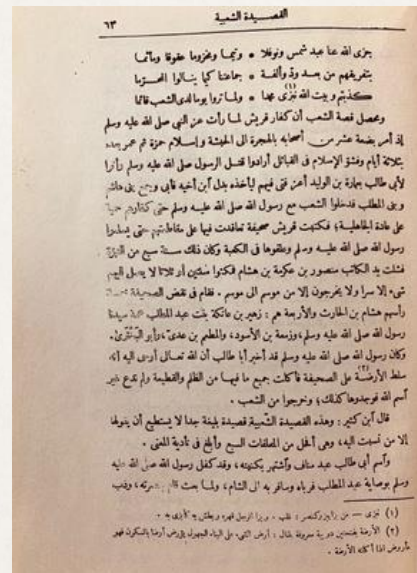 القصيدة الشعبية
٦٣
جزى الله عنا عبد شمس ونوفلا * وتيما ومخزوما عقوقا ومأثما
بتفريقهم من بعد ودّ وألفة * جماعتنا كيما ينالوا المحرّما
كذبتم وبيت الله نُبْزَى (١) محمدا * ولما تروا يوما لدى الشعب قائما
ومحصل قصة الشعب أن كفار قريش لما رأت عن النبي صلى الله عليه وسلم
إذ أمر بضعة عشر من أصحابه بالهجرة الى الحبشة وإسلام حمزة ثم عمر بعده
بثلاثة أيام وفشوّ الإسلام في القبائل أرادوا قتل الرسول صلى الله عليه وسلم وأتوا
لأبي طالب بعمارة بن الوليد أعز فتى فيهم ليأخذه بدل أبن أخيه فأبى وجمع بنى هاشم
وبنى المطلب فدخلوا الشعب مع رسول الله صلى الله عليه وسلم حتى كفارهم حمية
على عادة الجاهلية؛ فكتبت قريش صحيفة تعاقدت فيها على مقاطعتهم حتى يسلموا
رسول الله صلى الله عليه وسلم وعلقوها في الكعبة وكان ذلك سنة سبع من النبوّة
فشلت يد الكاتب منصور بن عكرمة بن هشام فمكثوا سنتين أو ثلاثا لا يصل اليهم
شيء إلا سرا ولا يخرجون إلا من موسم الى موسم . فقام في نقض الصحيفة
رأسهم هشام بن الحارث والأربعة هم : زهير بن عاتكة بنت عبد المطلب عمة سيدنا
رسول الله صلى الله عليه وسلم، وزمعة بن الأسود، والمطعم بن عدىّ، وأبو البَخْتَرىّ.
وكان رسول الله صلى الله عليه وسلم قد أخبر أبا طالب أن الله تعالى أوحى اليه أنه
سلط الأرضة (٢) على الصحيفة فأكلت جميع ما فيها من الظلم والقطيعة ولم تدع غير
أسم الله فوجدوها كذلك؛ وخرجوا من الشعب .
قال أبن كثير : وهذه القصيدة الشعبية قصيدة بليغة جدا لا يستطيع أن يقولها
إلا من نسبت اليه، وهى أفحل من المعلقات السبع وأبلغ في تأدية المعنى .
وأسم أبى طالب عبد مناف وأشتهر بكنيته، وقد كفل رسول الله صلى الله عليه
وسلم بوصاية عبد المطلب فرباه وسافر به الى الشام، ولما بعث قام بنصرته، وذب
(١) نبزى — من بزا يبزو كنصر : نغلب . وبزا الرجل قهره وبطش به كأبزى به .
(٢) الأرضة بفتحتين دويبة معروفة يقال : أرض الخشب على البناء للمجهول يؤرض أرضا بالسكون فهو
مأروض اذا أكلته الأرضة .